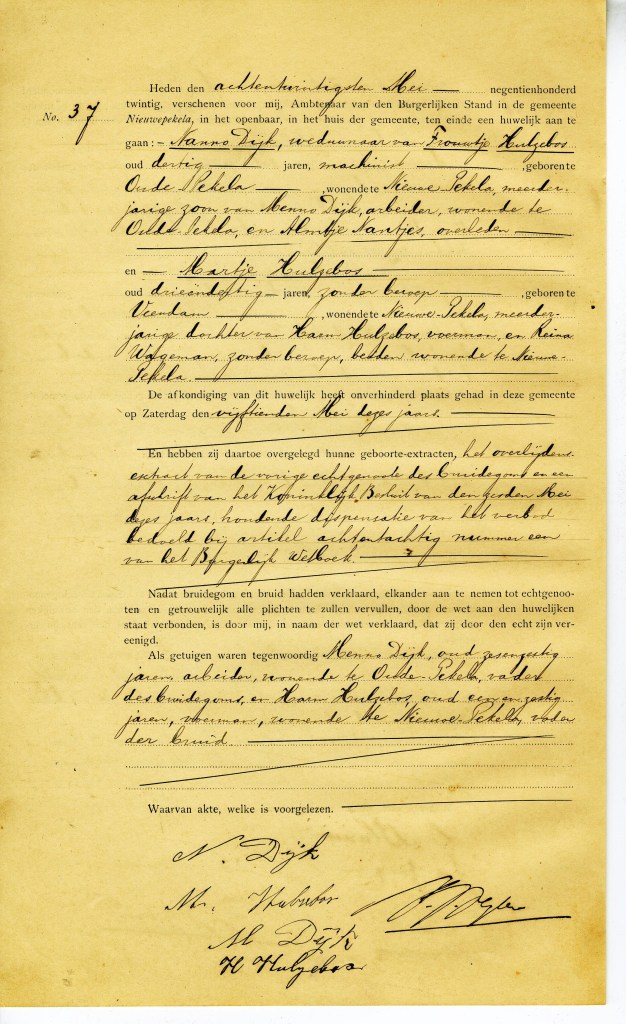 Heden den achtentwintigsten Mei negentienhonderd
No. 37
twintig, verschenen voor mij, Ambtenaar van den Burgerlijken Stand in de gemeente
Nieuwepekela, in het openbaar, in het huis der gemeente, ten einde een huwelijk aan te
gaan: Nanno Dijk, weduwnaar van Frouwtje Hulzebos
oud dertig jaren, machinist, geboren te
Oude Pekela, wonende te Nieuwe Pekela, meerder-
jarige zoon van Menno Dijk, arbeider, wonende te
Oude-Pekela, en Almtje Nantjes, overleden
en Martje Hulzebos
oud drieëndertig jaren, zonder beroep, geboren te
Veendam, wonende te Nieuwe-Pekela, meerder-
jarige dochter van Harm Hulzebos, voerman, en Reina
Wageman, zonder beroep, beiden wonende te Nieuwe-
Pekela.
De afkondiging van dit huwelijk heeft onverhinderd plaats gehad in deze gemeente
op Zaterdag den vijftienden Mei dezes jaars.
En hebben zij daartoe overgelegd hunne geboorte-extracten, het overlijdens-
extract van de vorige echtgenoote des bruidegoms en een
afschrift van het Koninklijk Besluit van den zesden Mei
dezes jaars, houdende dispensatie van het verbod
bedoeld bij artikel achtentachtig nummer een
van het Burgerlijk Wetboek.
Nadat bruidegom en bruid hadden verklaard, elkander aan te nemen tot echtgenoo-
ten en getrouwelijk alle plichten te zullen vervullen, door de wet aan den huwelijken
staat verbonden, is door mij, in naam der wet verklaard, dat zij door den echt zijn ver-
eenigd.
Als getuigen waren tegenwoordig Menno Dijk, oud zesenzestig
jaren, arbeider, wonende te Oude-Pekela, vader
des bruidegoms, en Harm Hulzebos, oud een en zestig
jaren, voerman, wonende te Nieuwe-Pekela, vader
der bruid.
Waarvan akte, welke is voorgelezen.
N. Dijk
M. Hulzebos
M Dijk
H Hulzebos